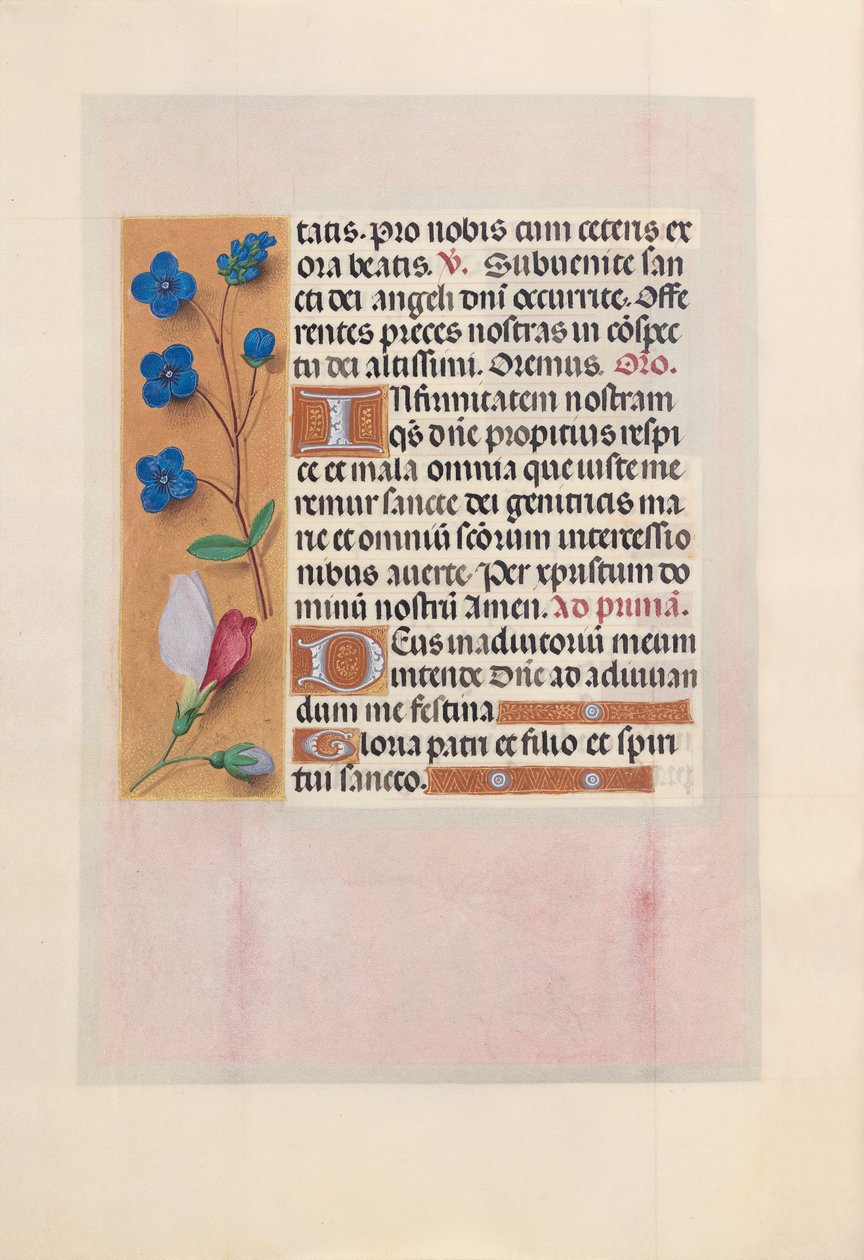 tatis. pro nobis cum ceteris ex
ora beatis. V̄. Subuenite san
cti dei angeli dnī occurrite. Offe
rentes preces nostras in cōspec
tu dei altissimi. Oremus. Orō.
Infirmitatem nostram
qs̄ dn̄e propitius respi
ce et mala omnia que iuste me
remur sancte dei genitricis ma
rie et omniū scōrum intercessio
nibus auerte. Per xpristum do
minū nostrū Amen. Ad primā.
Deus in adiutoriū meum
intende Dn̄e ad adiuuan
dum me festina
Gloria patri et filio et spiri
tui sancto.